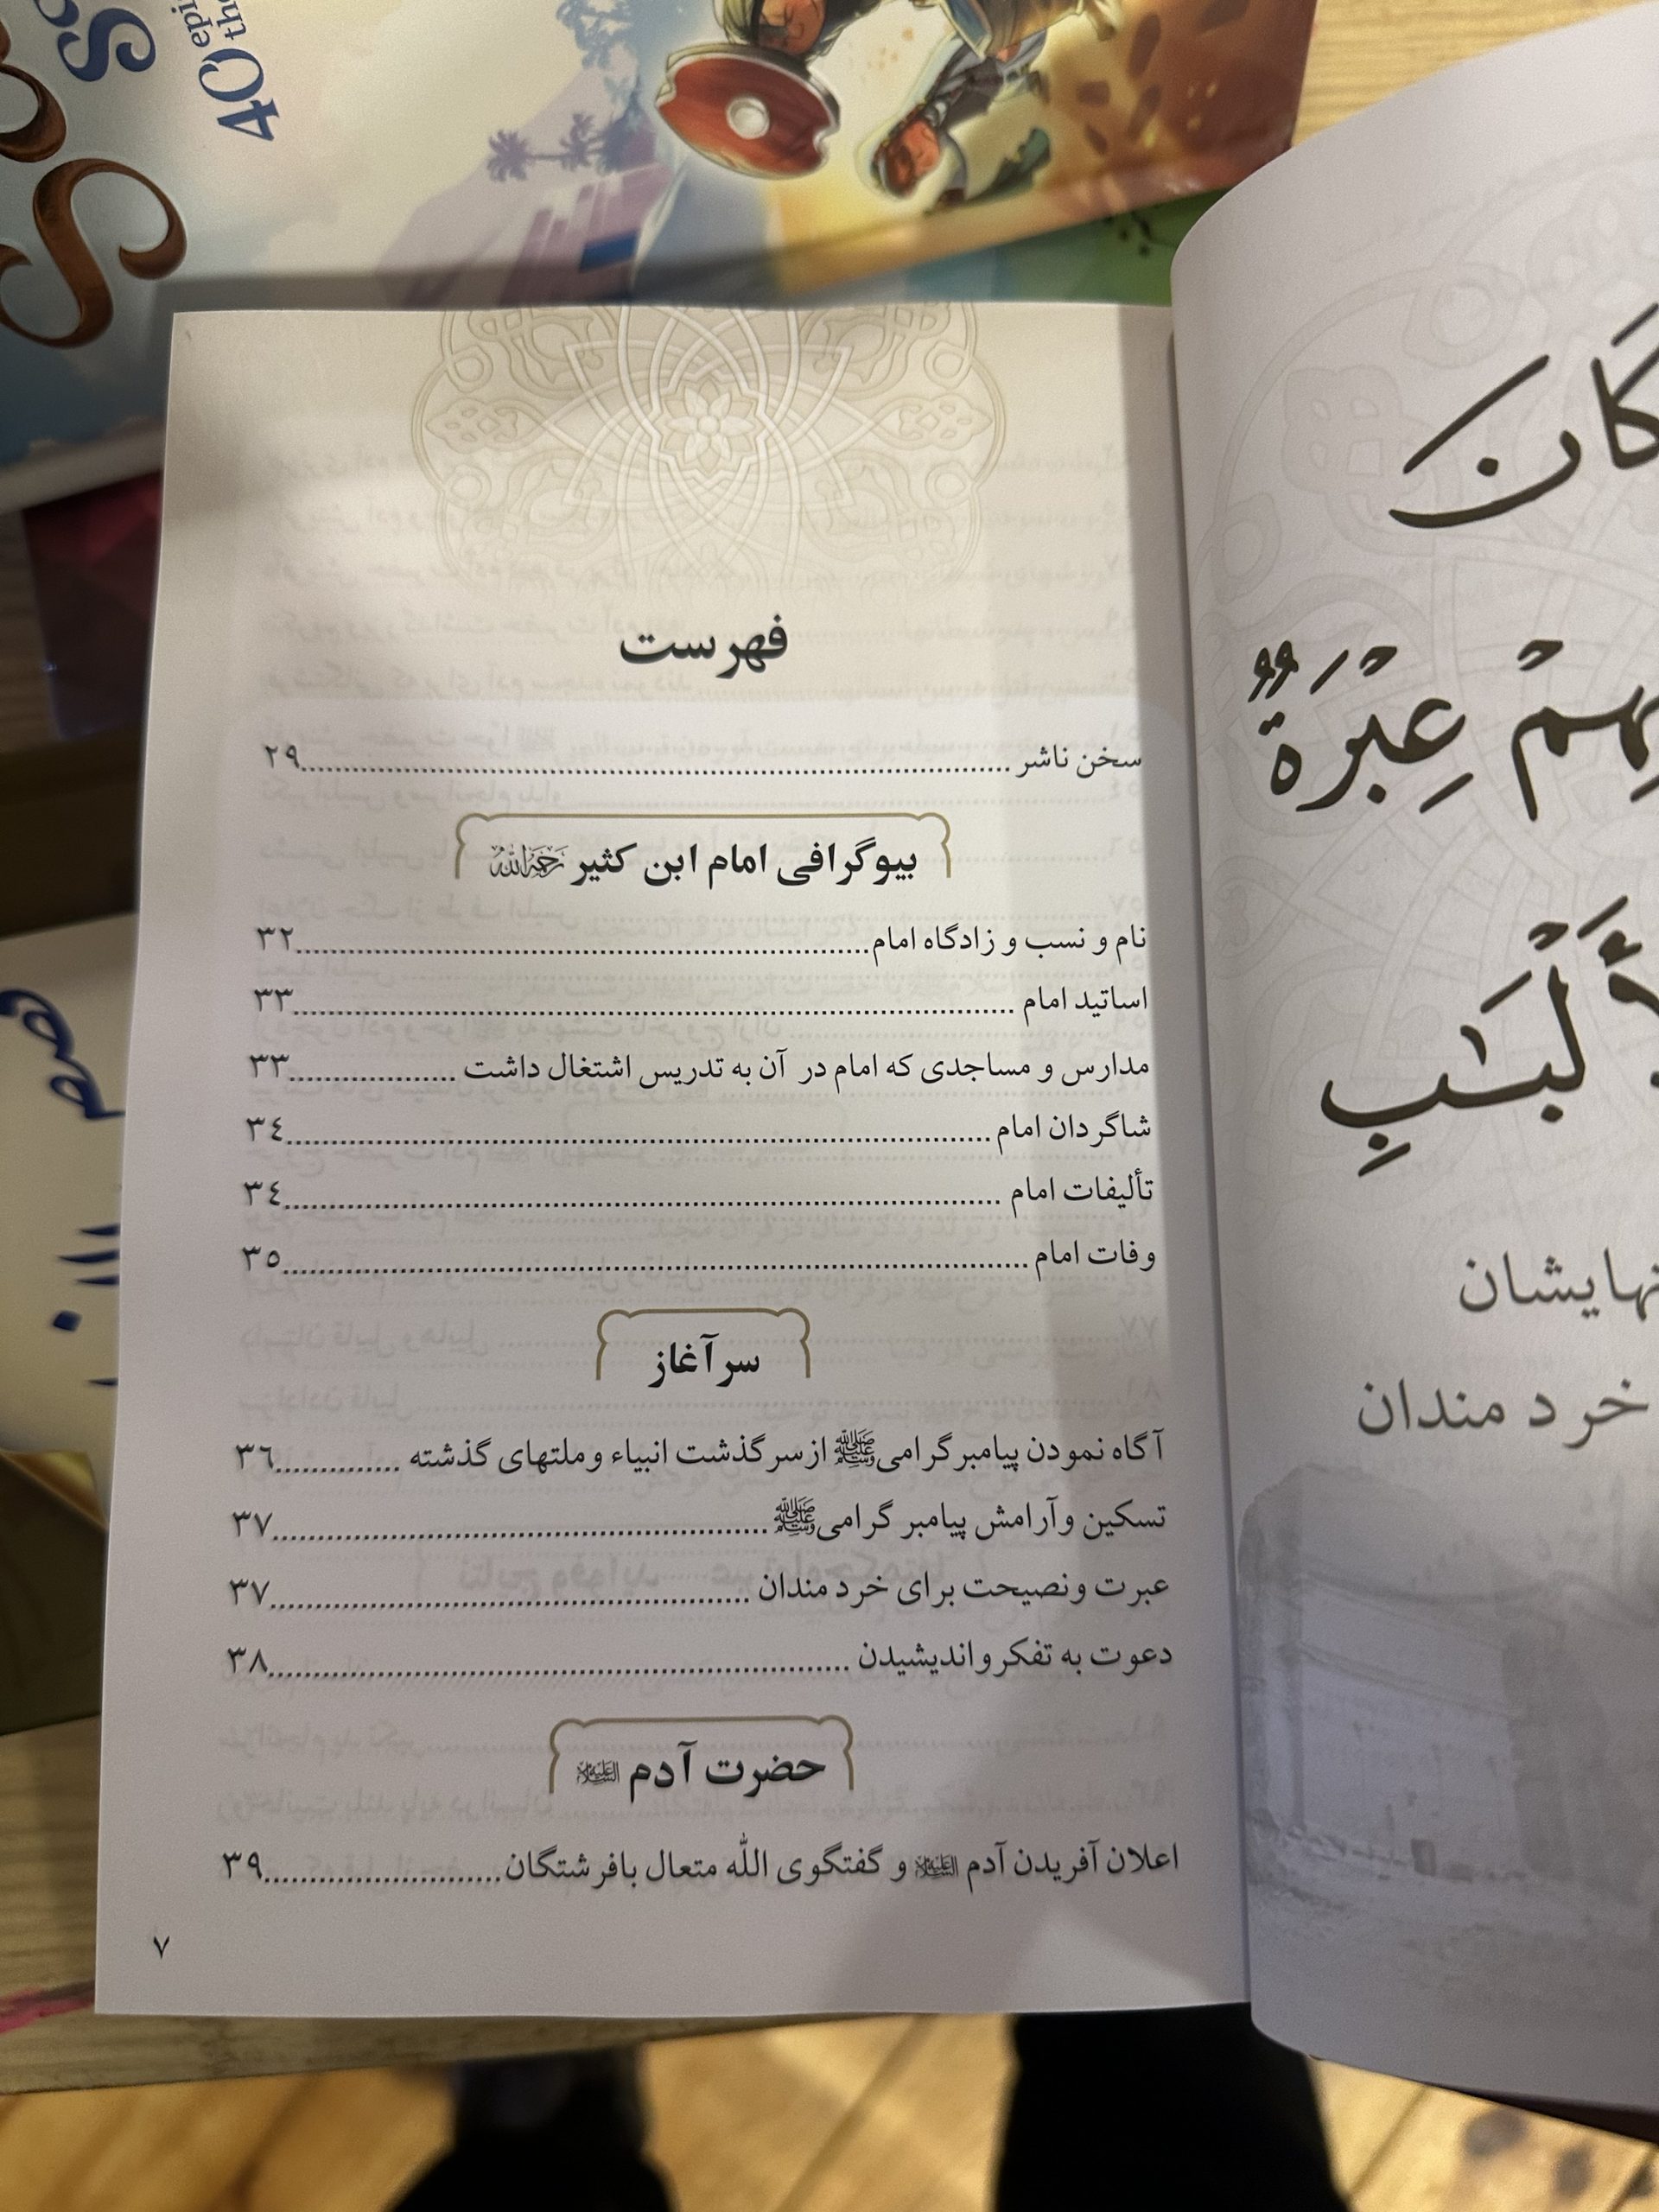 كَانَ
عِبْرَةٌ
خرد مندان
فهرست
سخن ناشر....................۲۹
بیوگرافی امام ابن کثیر رَحِمَهُ اللَّهُ
نام و نسب و زادگاه امام....................۳۲
اساتید امام ....................۳۳
مدارس و مساجدی که امام در آن به تدریس اشتغال داشت ....................۳۳
شاگردان امام....................۳٤
تألیفات امام ....................۳٤
وفات امام....................۳٥
سرآغاز
آگاه نمودن پیامبرگرامی ﷺ ازسرگذشت انبیاء وملتهای گذشته ....................۳٦
تسکین وآرامش پیامبر گرامی ﷺ....................۳۷
عبرت ونصیحت برای خرد مندان ....................۳۷
دعوت به تفکرواندیشیدن ....................۳۸
حضرت آدم عَلَيْهِ السَّلَام
اعلان آفریدن آدم عَلَيْهِ السَّلَام و گفتگوی الله متعال بافرشتگان....................۳۹
۷
40